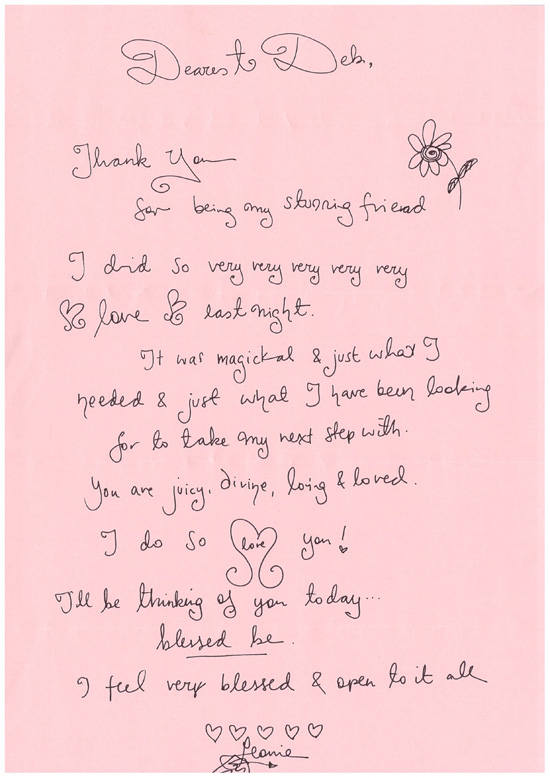 Dearest Deb,
Thank You
for being my stunning friend
I did so very very very very very
love last night.
It was magickal & just what I
needed & just what I have been looking
for to take my next step with.
You are juicy, divine, loving & loved.
I do so love you!
I'll be thinking of you today...
blessed be.
I feel very blessed & open to it all
Leonie